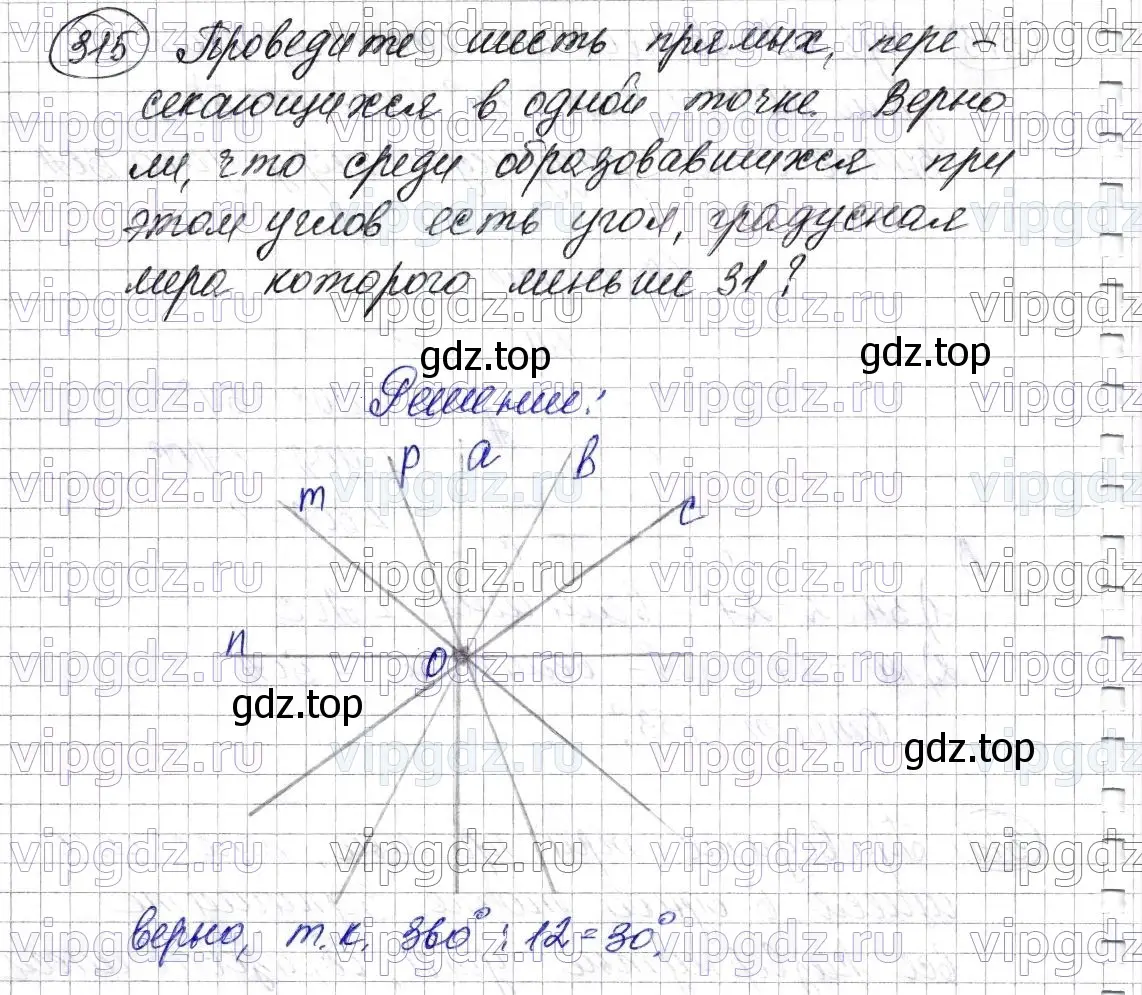 315 Проведите шесть прямых, пере-
секающихся в одной точке. Верно
ли, что среди образовавшихся при
этом углов есть угол, градусная
мера которого меньше 31?
gdz.top gdz.top
Решение:
m p a b c
n O
gdz.top
gdz.top
верно, т.к. 360° : 12 = 30°.
vipgdz.ru vipgdz.ru vipgdz.ru vipgdz.ru